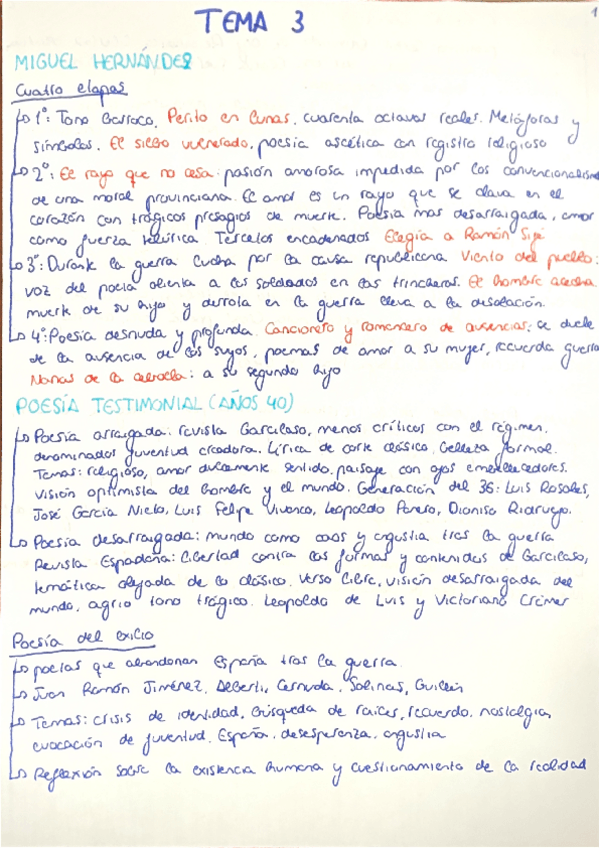 1
TEMA 3
MIGUEL HERNÁNDEZ
Cuatro etapas
1º: Tono Barroco. Perito en Lunas, cuarenta octavas reales. Metáforas y
símbolos. El silbo vulnerado, poesía ascética con registro religioso
2º: El rayo que no cesa: pasión amorosa impedida por los convencionalismos
de una moral provinciana. El amor es un rayo que se clava en el
corazón con trágicos presagios de muerte. Poesía mas desarraigada, amor
como fuerza telúrica. Tercetos encadenados Elegía a Ramón Sijé
3º: Durante la guerra lucha por la causa republicana Viento del pueblo:
voz del poeta alienta a los soldados en las trincheras. El hombre acecha
muerte de su hijo y derrota en la guerra lleva a la desolación.
4º: Poesía desnuda y profunda. Cancionero y romancero de ausencias: se duele
de la ausencia de los suyos, poemas de amor a su mujer, recuerda guerra
Nanas de la cebolla: a su segundo hijo
POESÍA TESTIMONIAL (AÑOS 40)
Poesía arraigada: revista Garcilaso, menos críticos con el régimen.
denominados juventud creadora. Lírica de corte clásico. Belleza formal.
Temas: religioso, amor dulcemente sentido, paisaje con ojos embellecedores.
Visión optimista del hombre y el mundo. Generación del 36: Luis Rosales,
José García Nieto, Luis Felipe Vivanco, Leopoldo Panero, Dionisio Ridruejo.
Poesía desarraigada: mundo como caos y angustia tras la guerra
Revista Espadaña: libertad contra las formas y contenidos de Garcilaso,
temática alejada de lo clásico. Verso libre, visión desarraigada del
mundo, agrio tono trágico. Leopoldo de Luis y Victoriano Crémer
Poesía del exilio
poetas que abandonan España tras la guerra
Juan Ramón Jiménez, Alberti, Cernuda, Salinas, Guillén
Temas: crisis de identidad, búsqueda de raíces, recuerdo, nostalgia,
evocación de juventud, España, desesperanza, angustia
Reflexión sobre la existencia humana y cuestionamiento de la realidad